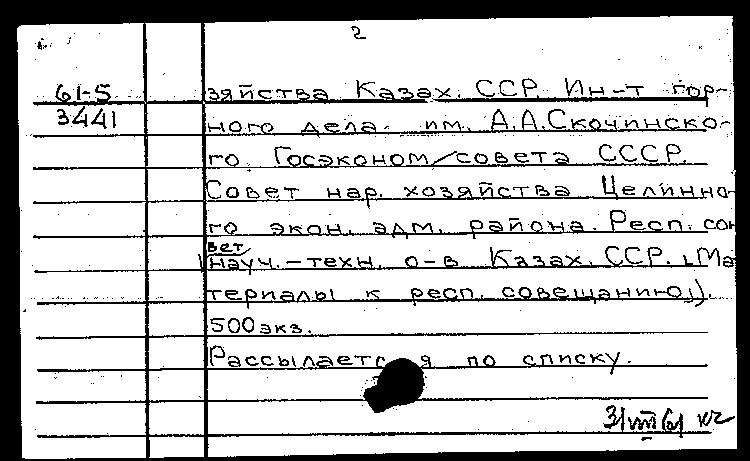 2
61-5
3441
зяйства Казах. ССР. Ин-т гор-
ного дела им. А.А.Скочинско-
го. Госэкономсовета СССР.
Совет нар. хозяйства Целинно-
го экон. адм. района. Респ. сов
вет
науч.-техн. о-в Казах. ССР. (Ма
териалы к респ. совещанию).
500 экз.
Рассылается по списку.
31 VIII 61